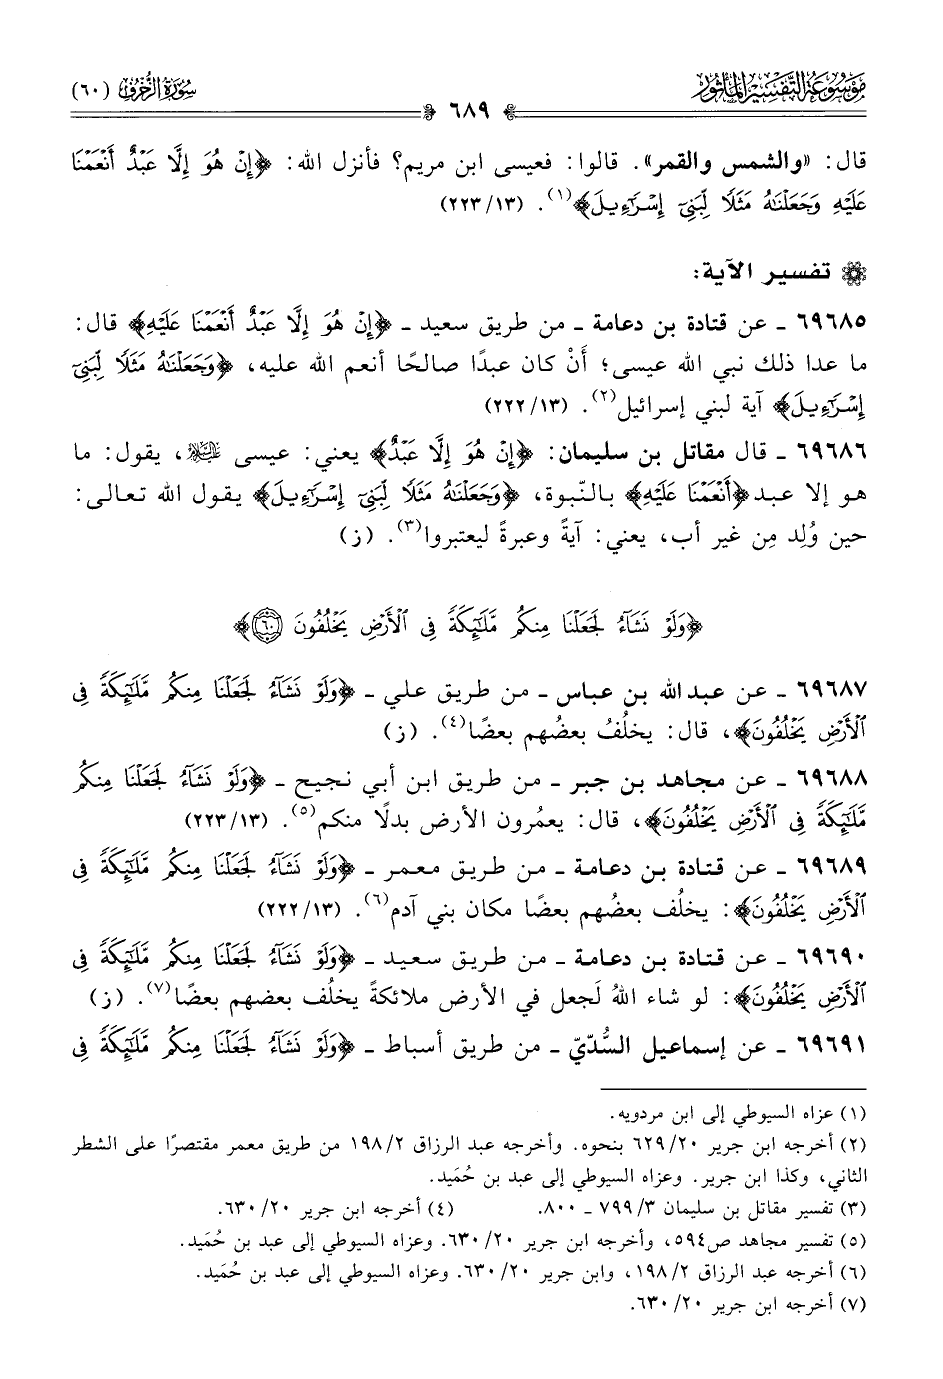 مَوْسُوعَةُ التَّفْسِيرِ المَأْثُور
سُورَةُ الزُّخْرُف (٦٠)
٦٨٩
قال: «والشمس والقمر». قالوا: فعيسى ابن مريم؟ فأنزل الله: ﴿إِنْ هُوَ إِلَّا عَبْدٌ أَنْعَمْنَا
عَلَيْهِ وَجَعَلْنَاهُ مَثَلًا لِّبَنِي إِسْرَاءِيلَ﴾(١). (١٣/ ٢٢٣)
تفسير الآية:
٦٩٦٨٥ ـ عن قتادة بن دعامة ـ من طريق سعيد ـ ﴿إِنْ هُوَ إِلَّا عَبْدٌ أَنْعَمْنَا عَلَيْهِ﴾ قال:
ما عدا ذلك نبي الله عيسى؛ أَنْ كان عبدًا صالحًا أنعم الله عليه، ﴿وَجَعَلْنَاهُ مَثَلًا لِّبَنِي
إِسْرَاءِيلَ﴾ آية لبني إسرائيل(٢). (١٣/ ٢٢٢)
٦٩٦٨٦ ـ قال مقاتل بن سليمان: ﴿إِنْ هُوَ إِلَّا عَبْدٌ﴾ يعني: عيسى ﵇، يقول: ما
هو إلا عبد ﴿أَنْعَمْنَا عَلَيْهِ﴾ بالنّبوة، ﴿وَجَعَلْنَاهُ مَثَلًا لِّبَنِي إِسْرَاءِيلَ﴾ يقول الله تعالى:
حين وُلِد مِن غير أب، يعني: آيةً وعبرةً ليعتبروا(٣). (ز)
﴿وَلَوْ نَشَاءُ لَجَعَلْنَا مِنكُم مَّلَائِكَةً فِي الْأَرْضِ يَخْلُفُونَ ٦٠﴾
٦٩٦٨٧ ـ عن عبد الله بن عباس ـ من طريق علي ـ ﴿وَلَوْ نَشَاءُ لَجَعَلْنَا مِنكُم مَّلَائِكَةً فِي
الْأَرْضِ يَخْلُفُونَ﴾، قال: يخلُفُ بعضُهم بعضًا(٤). (ز)
٦٩٦٨٨ ـ عن مجاهد بن جبر ـ من طريق ابن أبي نجيح ـ ﴿وَلَوْ نَشَاءُ لَجَعَلْنَا مِنكُم
مَّلَائِكَةً فِي الْأَرْضِ يَخْلُفُونَ﴾، قال: يعمُرون الأرض بدلًا منكم(٥). (١٣/ ٢٢٣)
٦٩٦٨٩ ـ عن قتادة بن دعامة ـ من طريق معمر ـ ﴿وَلَوْ نَشَاءُ لَجَعَلْنَا مِنكُم مَّلَائِكَةً فِي
الْأَرْضِ يَخْلُفُونَ﴾: يخلُف بعضُهم بعضًا مكان بني آدم(٦). (١٣/ ٢٢٢)
٦٩٦٩٠ ـ عن قتادة بن دعامة ـ من طريق سعيد ـ ﴿وَلَوْ نَشَاءُ لَجَعَلْنَا مِنكُم مَّلَائِكَةً فِي
الْأَرْضِ يَخْلُفُونَ﴾: لو شاء اللهُ لَجعل في الأرض ملائكةً يخلُف بعضهم بعضًا(٧). (ز)
٦٩٦٩١ ـ عن إسماعيل السُّدّيّ ـ من طريق أسباط ـ ﴿وَلَوْ نَشَاءُ لَجَعَلْنَا مِنكُم مَّلَائِكَةً فِي
(١) عزاه السيوطي إلى ابن مردويه.
(٢) أخرجه ابن جرير ٢٠/ ٦٢٩ بنحوه. وأخرجه عبد الرزاق ٢/ ١٩٨ من طريق معمر مقتصرًا على الشطر
الثاني، وكذا ابن جرير. وعزاه السيوطي إلى عبد بن حُمَيد.
(٣) تفسير مقاتل بن سليمان ٣/ ٧٩٩ ـ ٨٠٠. (٤) أخرجه ابن جرير ٢٠/ ٦٣٠.
(٥) تفسير مجاهد ص٥٩٤، وأخرجه ابن جرير ٢٠/ ٦٣٠. وعزاه السيوطي إلى عبد بن حُمَيد.
(٦) أخرجه عبد الرزاق ٢/ ١٩٨، وابن جرير ٢٠/ ٦٣٠. وعزاه السيوطي إلى عبد بن حُمَيد.
(٧) أخرجه ابن جرير ٢٠/ ٦٣٠.